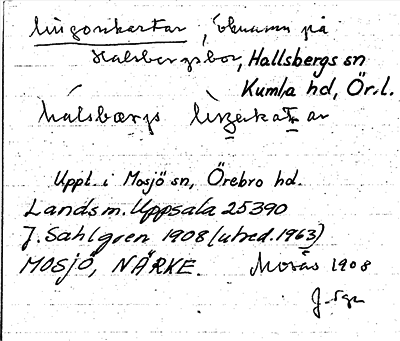 lingonkartar, öknamn på
Halsbergsbor, Hallsbergs sn
Kumla hd, Ör.l.
halsbærgs
Uppt. i Mosjö sn, Örebro hd.
Landsm. Uppsala 25390
J. Sahlgren 1908 (utred. 1963)
MOSJÖ, NÄRKE. Mosås 1908
J. Sgn